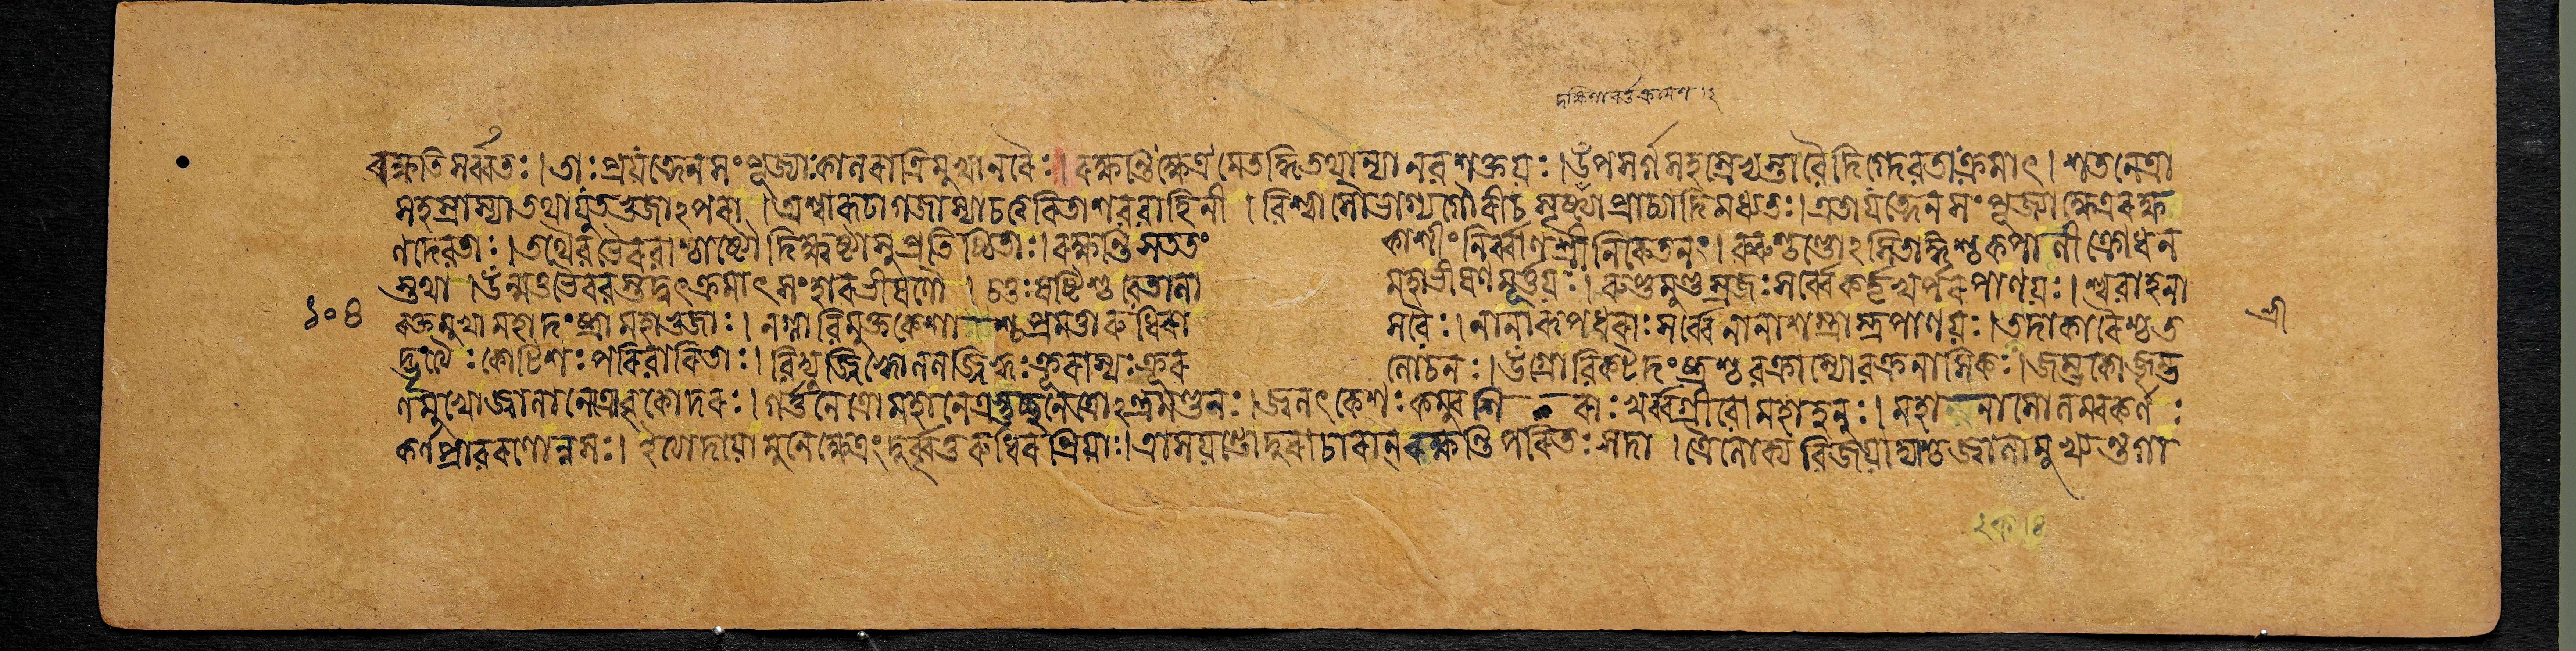 দক্ষিণাবর্ত্তক্রমেণ ।২
ৰক্ষন্তি সর্ব্বতঃ । তাঃ প্রযত্নেন সংপূজ্যাঃ কালৰাত্রিমুখা নৰৈঃ । ৰক্ষন্তি ক্ষেত্রমেতদ্ধি তথান্যা নবশক্তয়ঃ । উপসর্গসহস্রেভ্যস্তা বৈ দিগ্দেবতাঃ ক্রমাৎ । শতনেত্রা
সহস্রাস্যা তথাযুতভুজাঽপৰা । অশ্বাৰূঢা গজাস্যা চ ত্বৰিতা শববাহিনী । বিশ্বা সৌভাগ্যগৌৰী চ সৃষ্টাঃ প্রাচ্যাদিমধ্যতঃ । এতা যত্নেন সংপূজ্যাঃ ক্ষেত্রৰক্ষ
ণদেবতাঃ । তথৈব ভৈৰবাশ্চাষ্টৌ দিক্ষ্বষ্টাসু প্রতিষ্ঠিতাঃ । ৰক্ষন্তি সততং কাশীং নির্ব্বাণশ্রীনিকেতনং । ৰুৰুশ্চণ্ডোঽসিতাঙ্গশ্চ কপালী ক্রোধন
স্তথা । উন্মত্তভৈৰবস্তদ্বৎ ক্রমাৎ সংহাৰভীষণৌ । চতুঃষষ্টিশ্চ বেতালা মহাভীষণমূর্ত্তয়ঃ । ৰুণ্ডমুণ্ডস্রজঃ সর্ব্বে কর্ত্তৃখর্পৰপাণয়ঃ । শ্ববাহনা
ৰক্তমুখা মহাদংষ্ট্রা মহাভুজাঃ । নগ্না বিমুক্তকেশাশ্চ প্রমত্তা ৰুধিৰাসবৈঃ । নানাৰূপধৰাঃ সর্ব্বে নানাশস্ত্রাস্ত্রপাণয়ঃ । তদাকাৰৈশ্চ ত
দ্ভৃত্যৈঃ কোটিশঃ পৰিবাৰিতাঃ । বিদ্যুজ্জিহ্বো ললজ্জিহ্বঃ ক্রূৰাস্যঃ ক্রূৰলোচনঃ । উগ্রো বিকটদংষ্ট্রশ্চ বক্রাস্যো বক্রনাসিকঃ । জম্ভকো জৃম্ভ
ণমুখো জ্বালানেত্রো বৃকোদৰঃ । গর্ত্তনেত্রো মহানেত্রস্তুচ্ছনেত্রোঽন্ত্রমণ্ডনঃ । জ্বলৎকেশঃ কম্বুশিৰাঃ খর্ব্বগ্রীবো মহাহনুঃ । মহানাসো লম্বকর্ণঃ
কর্ণপ্রাবৰণোন্নসঃ । ইত্যাদয়ো মুনে ক্ষেত্রং দুর্ব্বৃত্তৰুধিৰপ্রিয়াঃ । ত্রাসয়ন্তো দুৰাচাৰান্ ৰক্ষন্তি পৰিতঃ সদা । ত্রৈলোক্যবিজয়াদ্যাশ্চ জ্বালামুখ্যন্তগা
১০৪
শ্রী